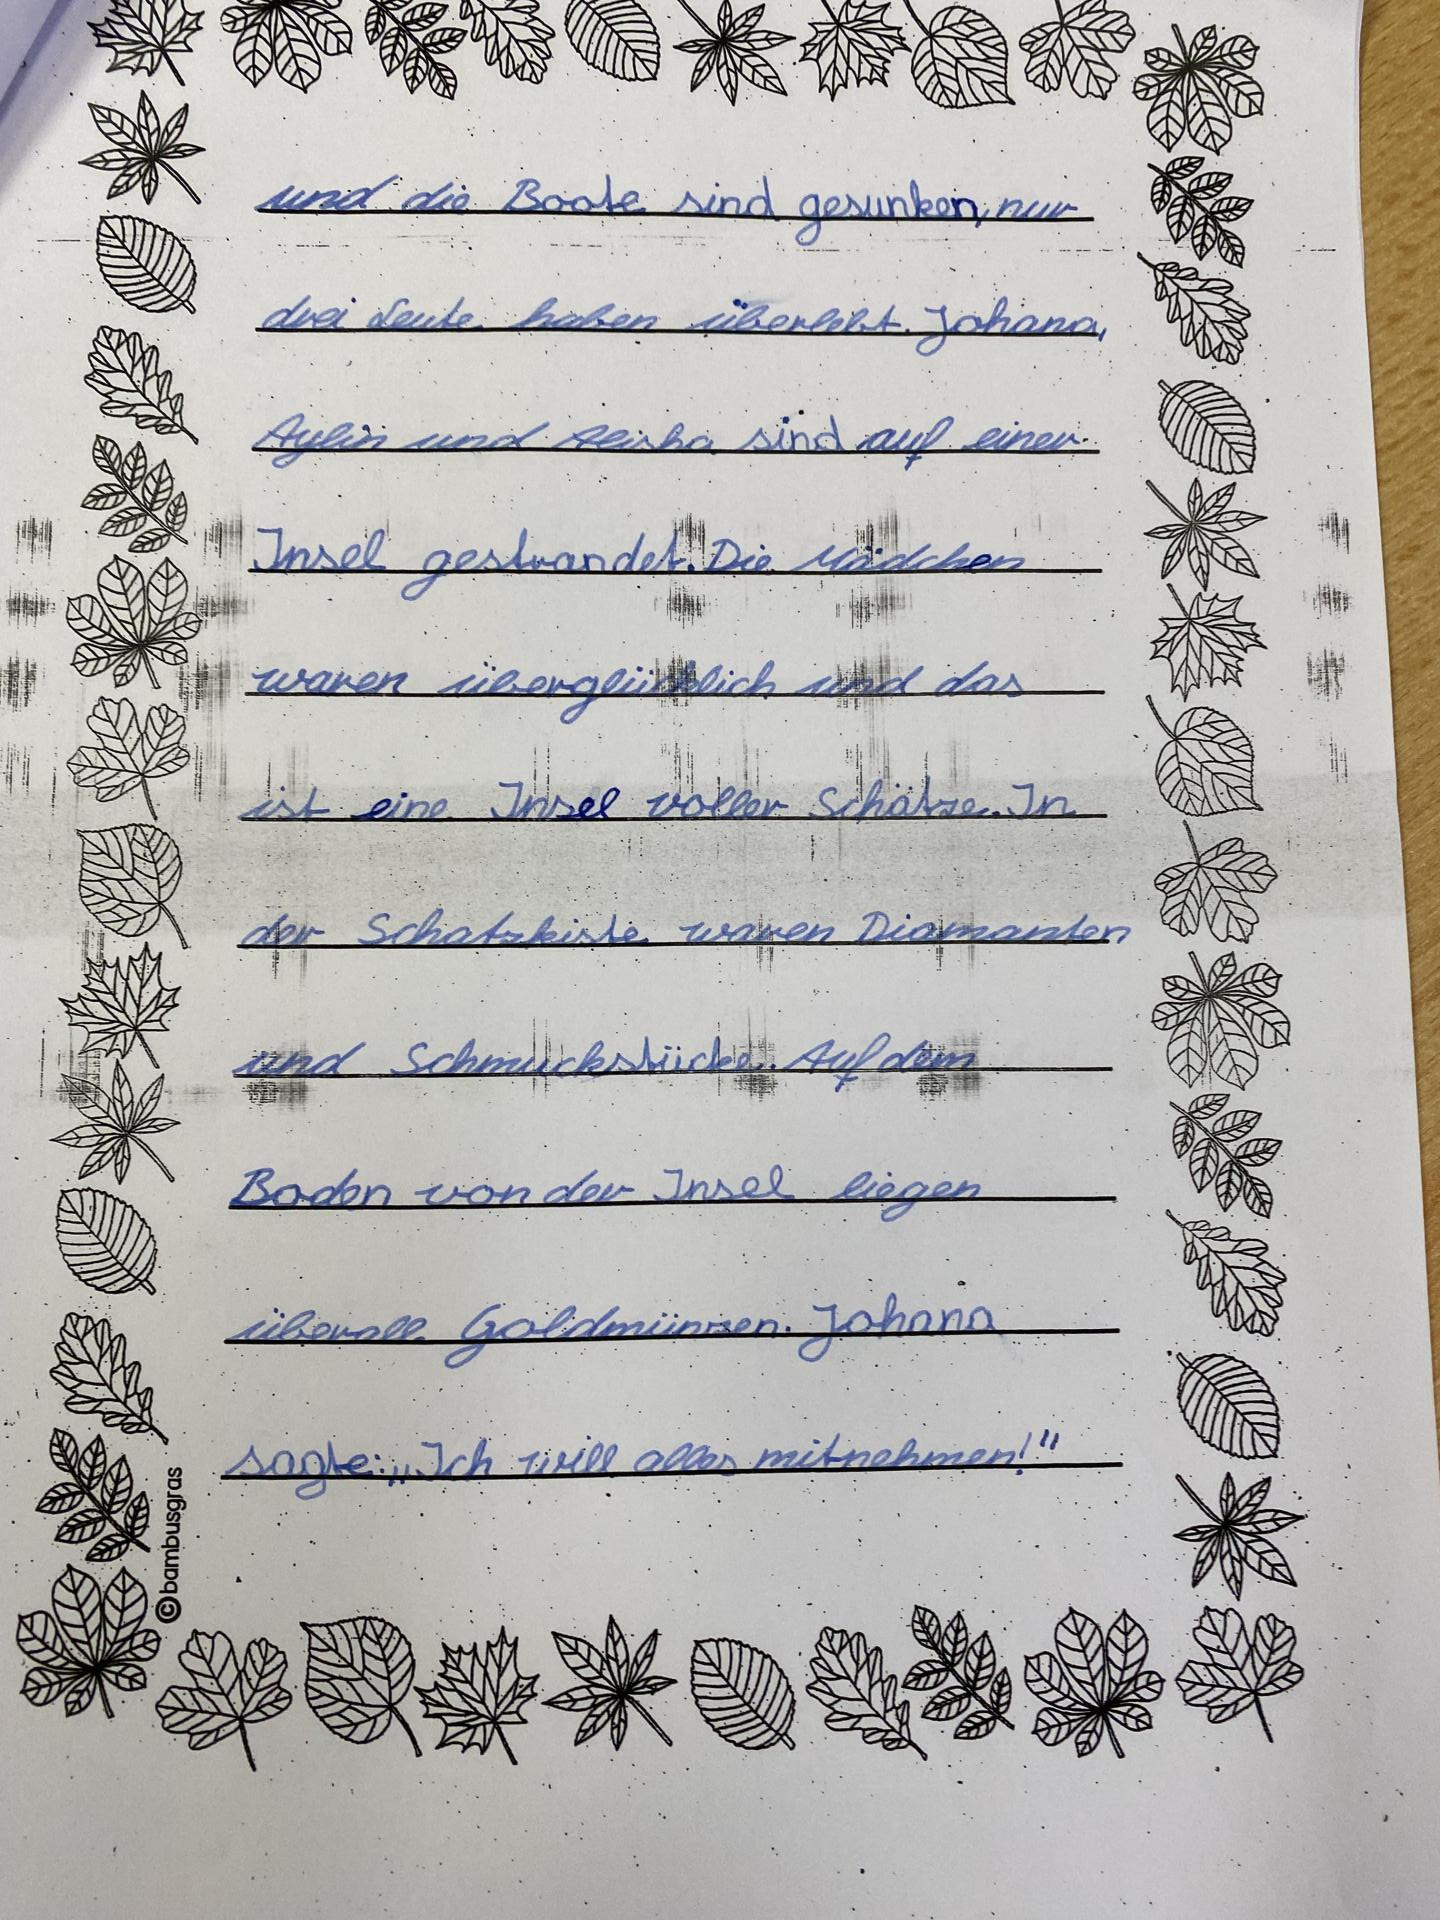 und die Boote sind gesunken, nur
drei Leute haben überlebt. Johana,
Aylin und Alisha sind auf einer
Insel gestrandet. Die Mädchen
waren überglücklich und das
ist eine Insel voller Schätze. In
der Schatzkiste waren Diamanten
und Schmuckstücke. Auf dem
Boden von der Insel liegen
überall Goldmünzen. Johana
sagte: „Ich will alles mitnehmen!"
©bambusgras